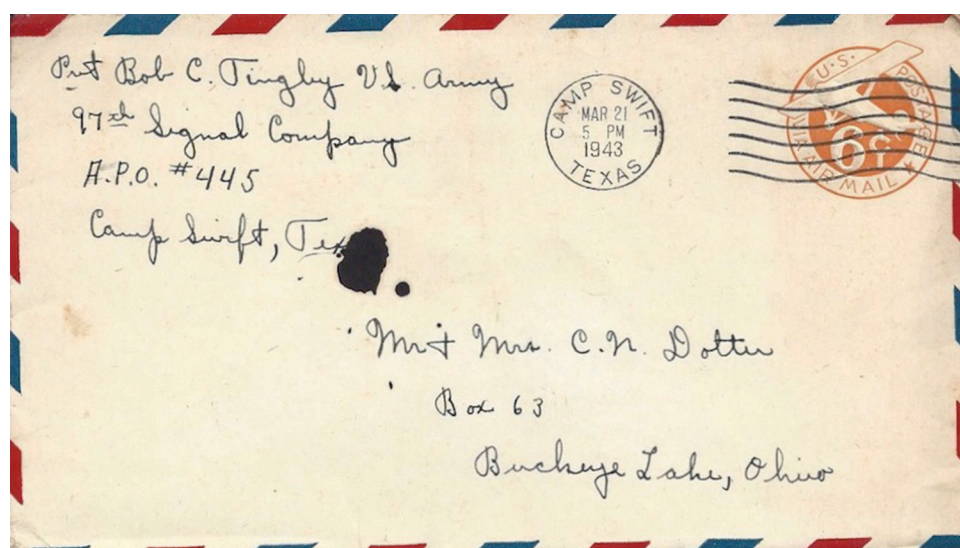 Pvt Bob C. Tingley U.S. Army
97th Signal Company
A.P.O. #445
Camp Swift, Tex
CAMP SWIFT
MAR 21
5 PM
1943
TEXAS
U.S. POSTAGE
VIA AIR MAIL
6¢
Mr & Mrs. C.N. Dotter
Box 63
Buckeye Lake, Ohio